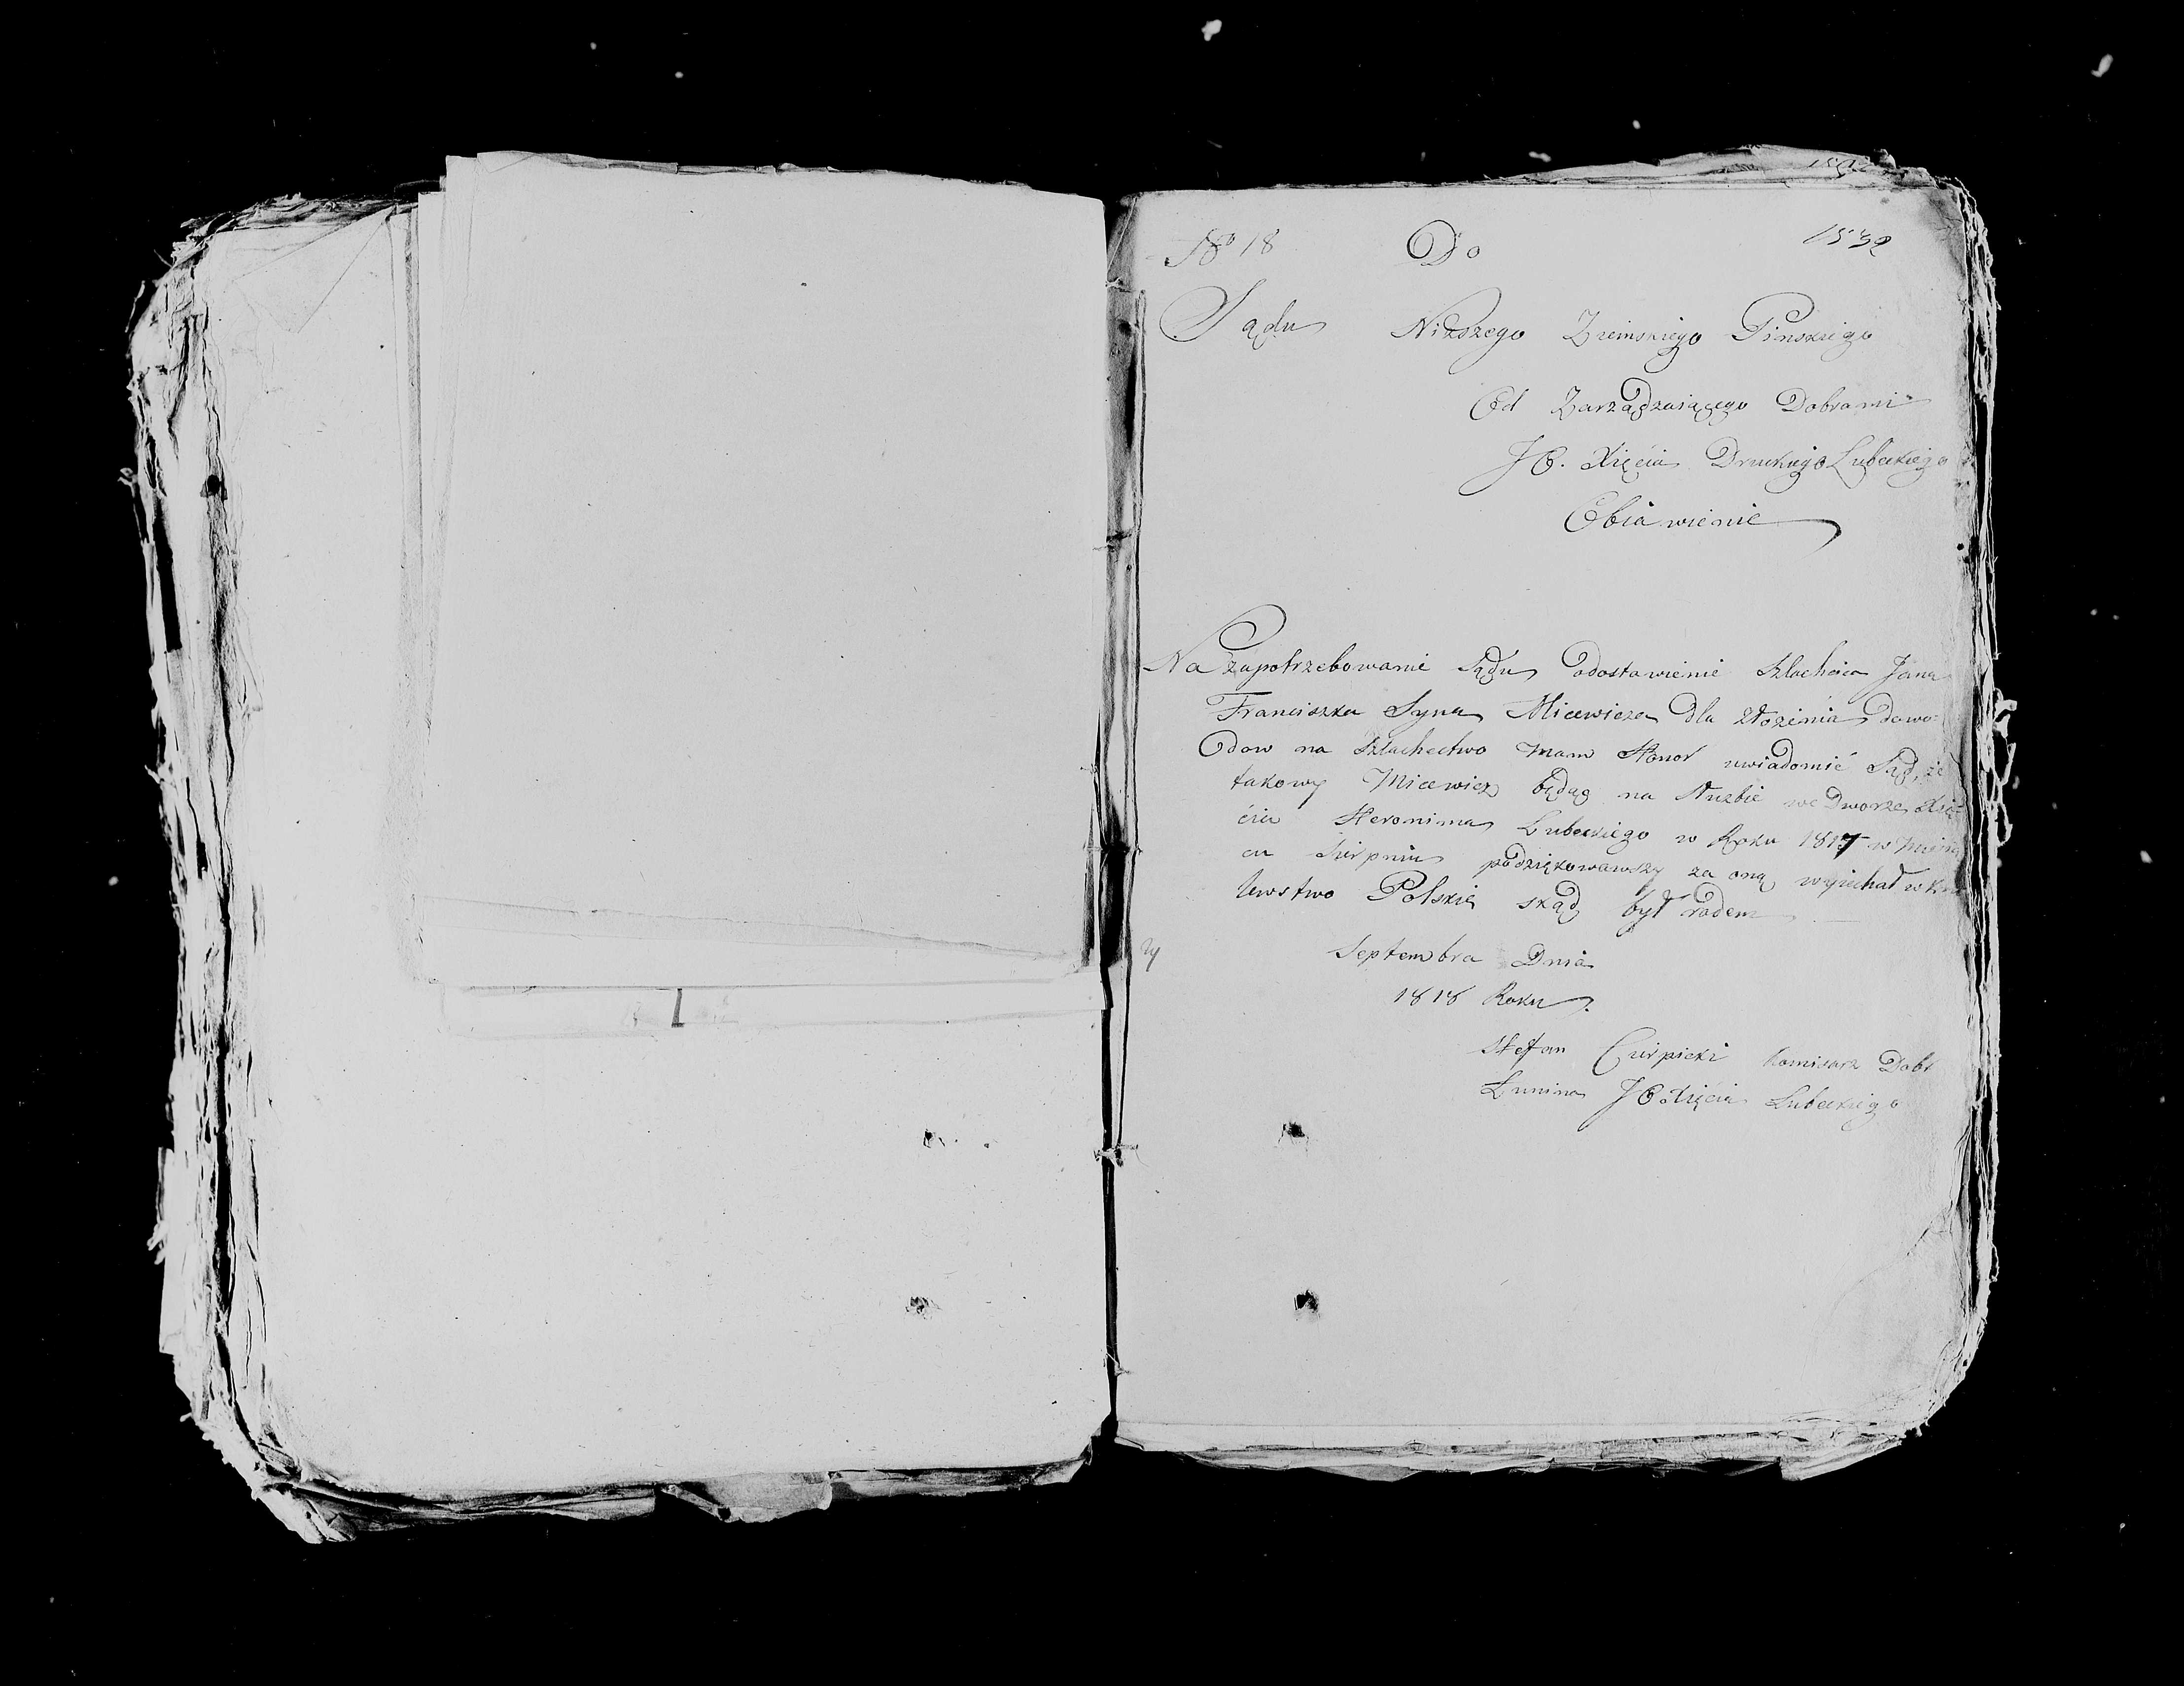 No 18 Do 1532
Sądu Niższego Ziemskiego Pinskiego
Od Zarządzaiącego Dobrami
JO. Xięcia Druckiego Lubeckiego
Obiawienie
Na zapotrzebowanie Sądu odostawienie Szlachcica Jana
Franciszka Syna Micewicza dla złożenia dowo:
dow na Szlachectwo mam Honor uwiadomić Sąd, że
takowy Micewicz będąc na służbie we Dworze Xię
ęcia Heronima Lubeckiego w Roku 1817 w Miesią
cu Sierpniu podziękowawszy za oną wyiechał w Kró
lewstwo Polskie skąd był rodem
Septembra Dnia
1818 Roku.
Stefan Cierpicki Komisarz Dobr
Łunina JO Xięcia Lubeckiego